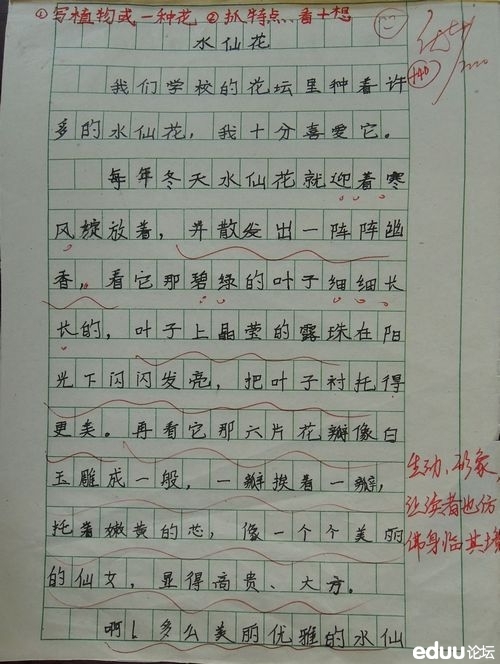 ①写植物或一种花 ②抓特点、看+想
水仙花
我们学校的花坛里种着许
多的水仙花，我十分喜爱它。
每年冬天水仙花就迎着寒
风绽放着，并散发出一阵阵幽
香。看它那碧绿的叶子细细长
长的，叶子上晶莹的露珠在阳
光下闪闪发亮，把叶子衬托得
更美。再看它那六片花瓣像白
玉雕成一般，一瓣挨着一瓣，
托着嫩黄的芯，像一个个美丽
的仙女，显得高贵、大方。
啊！多么美丽优雅的水仙
生动、形象，
让读者也仿
佛身临其境
eduu论坛